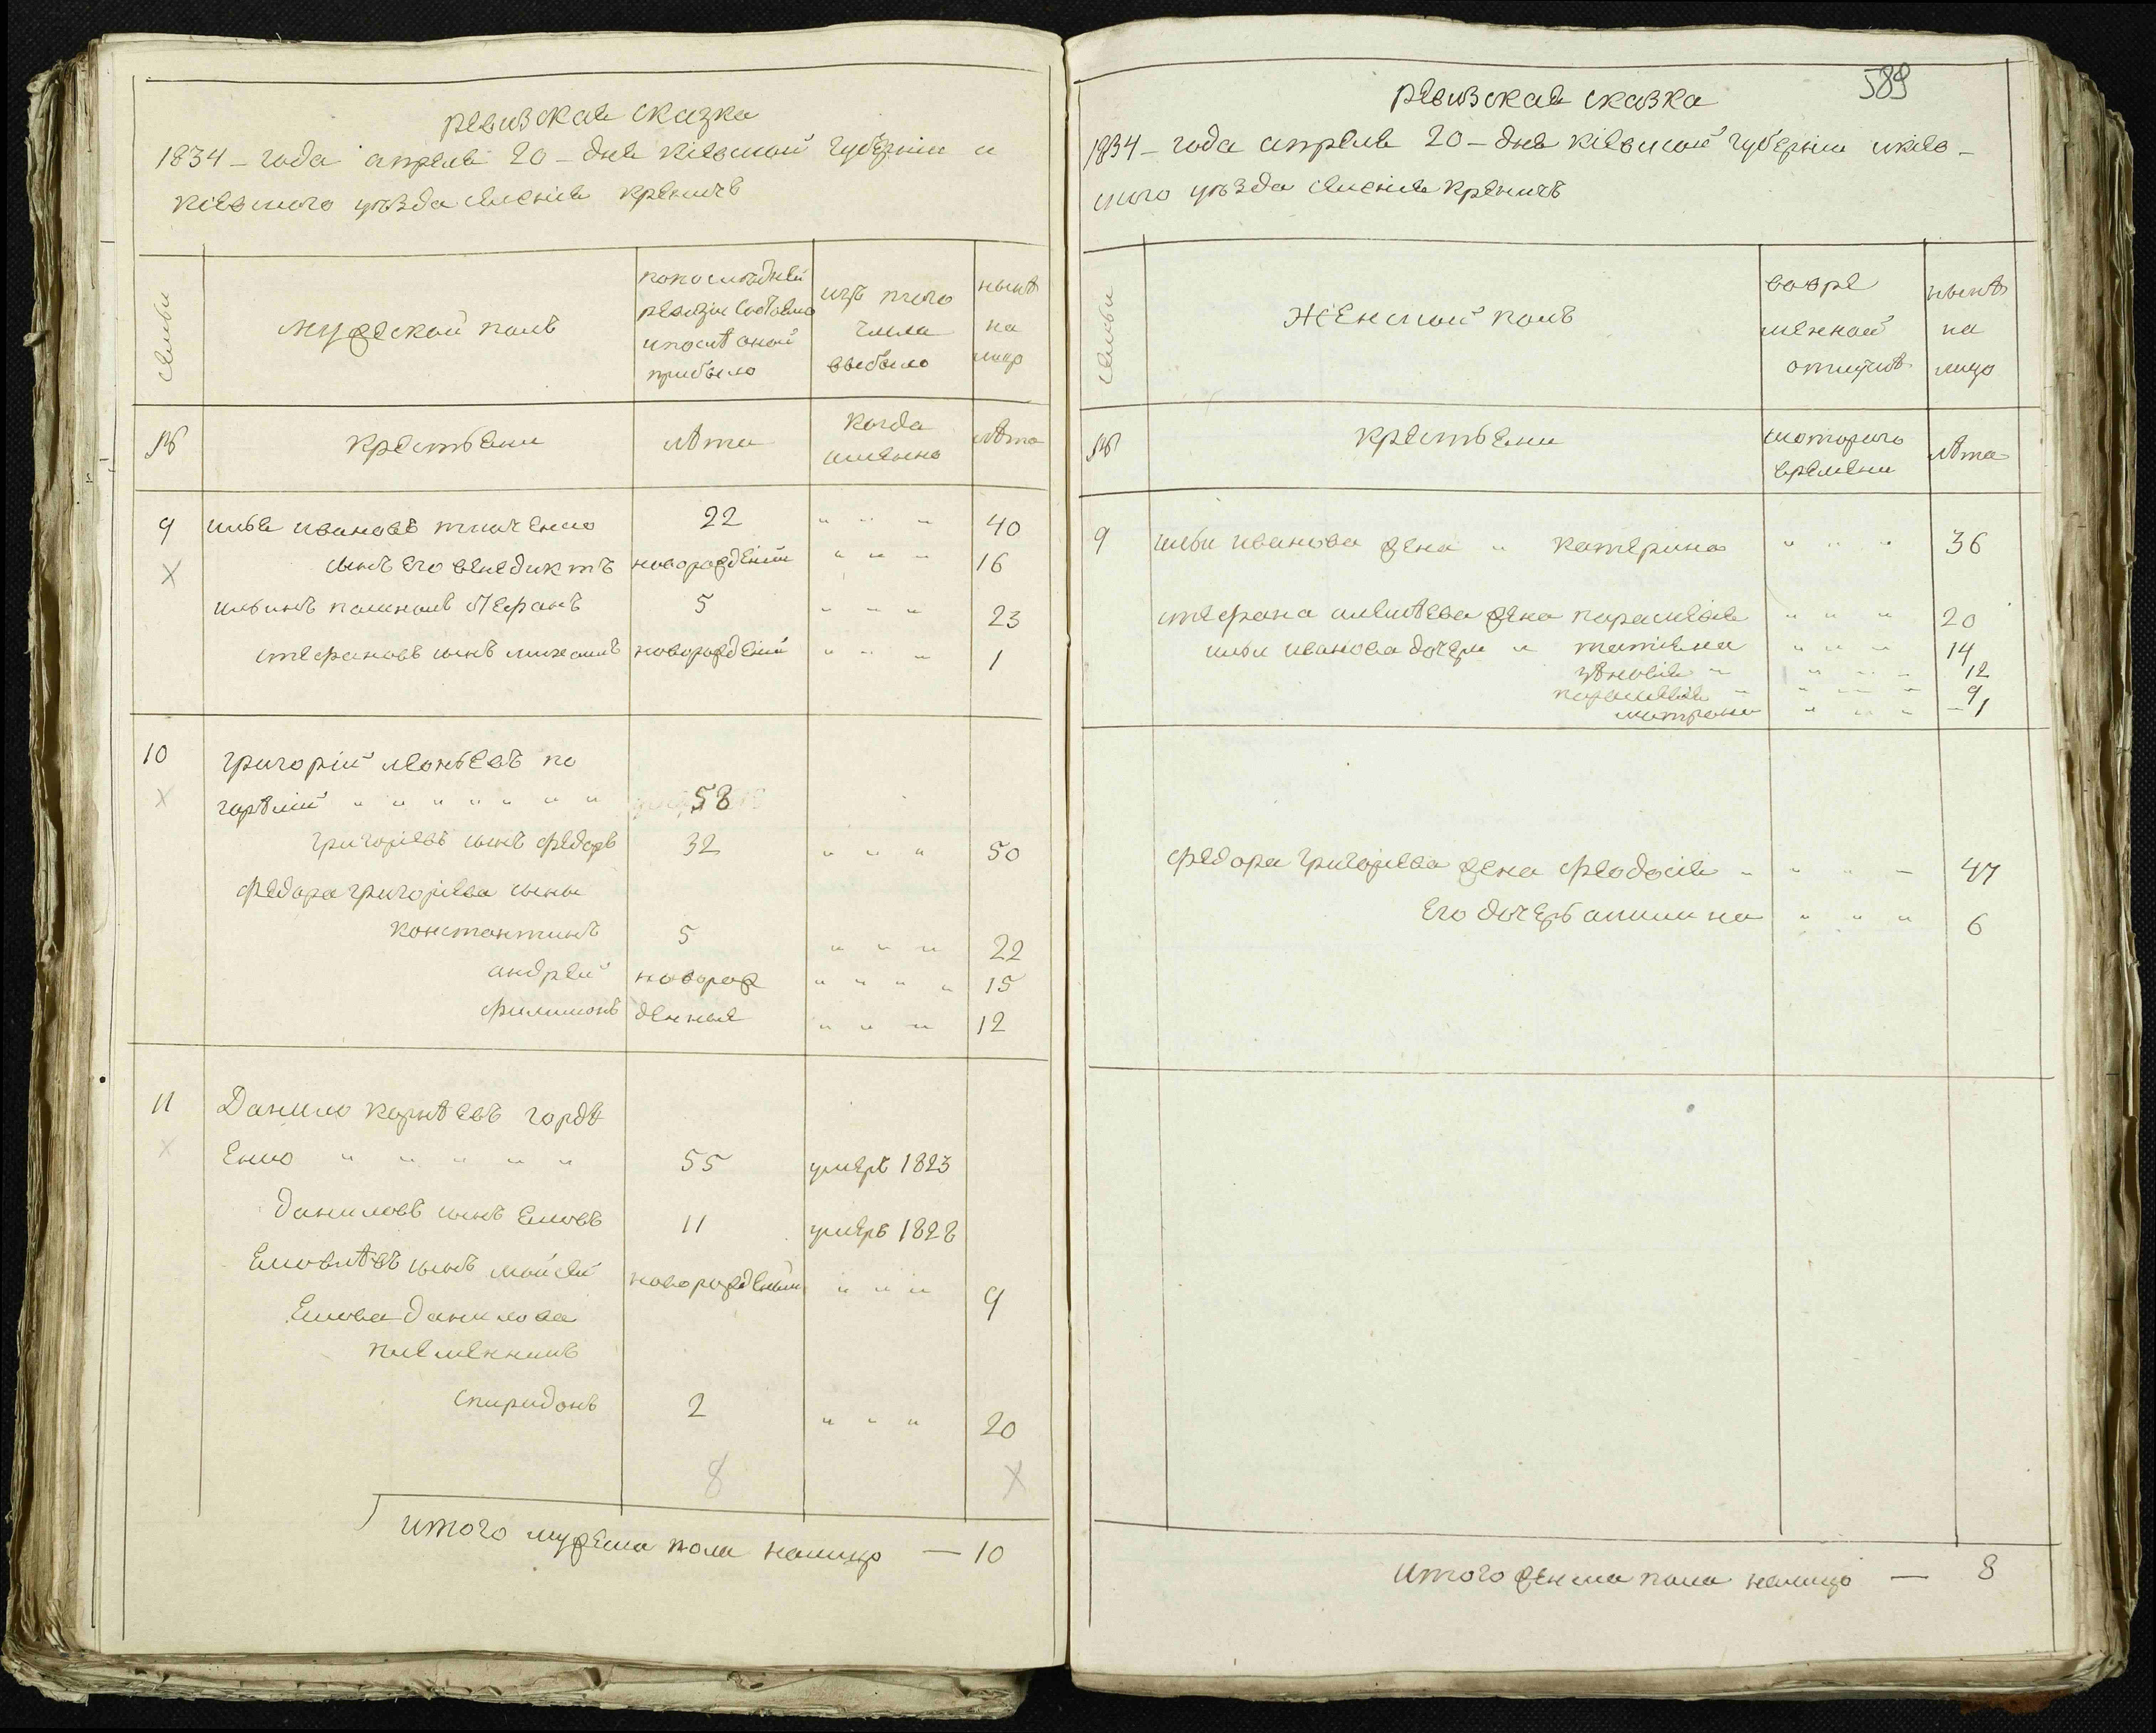 ревизская сказка
1834 – года апреля 20 – дня киевской губернии и
киевского уезда селения креничъ
семьи
мужеской полъ
по последней
ревизи состояло
и после оной
прибыло
изъ того
числа
выбыло
ныне
на
лицо
№
крестьяни
лѣта
когда
именно
лѣта
9 илья ивановъ ткаченко 22 " " " 40
сынъ его венедиктъ новорождений " " " 16
ильинъ стефанъ 5 " " " 23
стефановъ сынъ михаилъ новорожденій " " " 1
10 григорій леоньевъ по
горѣлий " " " " " " " 58
григорьевъ сынъ федоръ 32 " " " 50
федора григорьева сыны
константинъ 5 " " " 22
андрей новорож " " " " 15
филимонъ денные " " " 12
11 Данило корнѣевъ гордѣ
Енко " " " " " 55 умеръ 1823
даниловъ сынъ Яковъ 11 умеръ 1828
сынъ мойсей новорожденний " " " 9
данилова
племенникъ
спиридонъ 2 " " " 20
8 X
итого мужеска пола налицо — 10
589
ревизская сказка
1834 – года апреля 20 – дня киевской губернии икиев –
ского уѣзда селения креничъ
семьи
Женской полъ
вовре
менной
отлучкѣ
нынѣ
на
лицо
№
крестьяни
скоторого
времени
лѣта
9 ильи иванова жена " катерина " " " 36
стефана алексѣева жена параскевия " " " 20
ильи иванова дочери " татіяна " " " 14
зѣновия " " " " 12
параскевия " " " " 9
матрона " " " – 1
федора григорьева жена феодосия " " " – 47
Его дочерь акилина " " " 6
итого женска пола налицо — 8